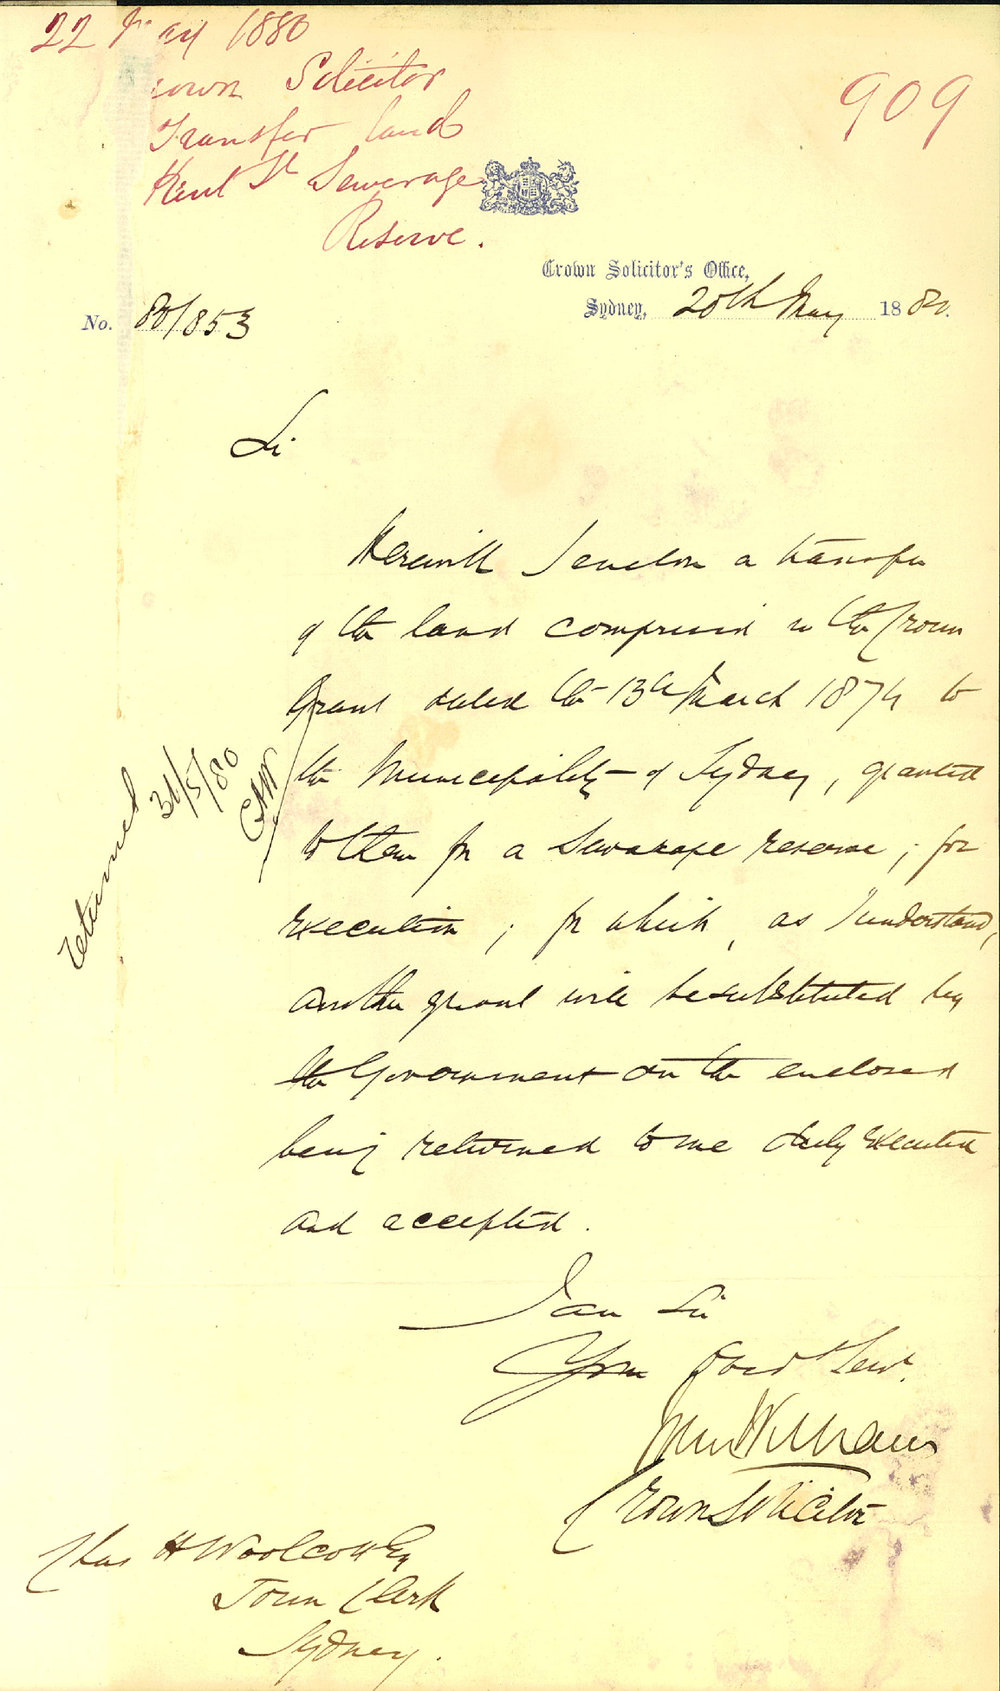 22 May 1880
Crown Solicitor
Transfer land
Kent St Sewerage
Reserve.
909
Crown Solicitor's Office,
Sydney, 20th May 1880.
No. 80/853
Sir
Herewith I enclose a transfer
of the land comprised in the Crown
Grant dated the 13th March 1874 to
the Municipality of Sydney, granted
to them for a Sewerage reserve; for
execution; for which, as I understand,
another grant will be substituted by
the Government on the enclosed
being returned to me duly executed
and accepted.
returned
31/5/80
CHW
I am Sir
Your Obedt Servt.
John Williams
Crown Solicitor
Chas H Woolcott Esq
Town Clerk
Sydney.